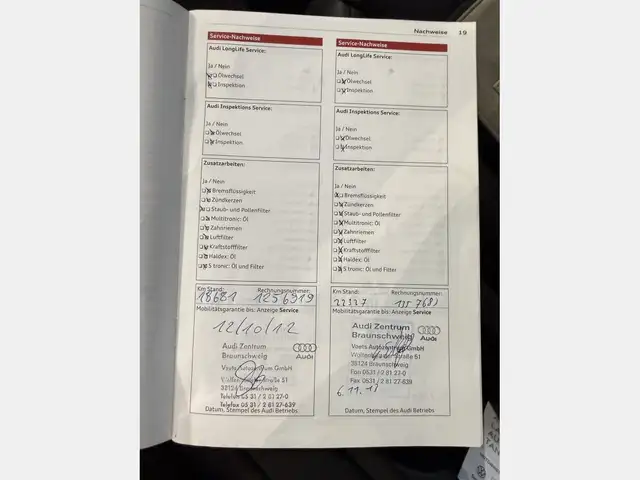 Nachweise 19
Service-Nachweise
Audi LongLife Service:
Ja / Nein
Ölwechsel
Inspektion
Audi Inspektions Service:
Ja / Nein
Ölwechsel
Inspektion
Zusatzarbeiten:
Ja / Nein
Bremsflüssigkeit
Zündkerzen
Staub- und Pollenfilter
Multitronic: Öl
Zahnriemen
Luftfilter
Kraftstofffilter
Haldex: Öl
S tronic: Öl und Filter
Km Stand: Rechnungsnummer:
18681 1256919
Mobilitätsgarantie bis: Anzeige Service
12/10/12
Audi Zentrum
Braunschweig
Audi
Voets Autozentrum GmbH
38124 Braunschweig
Telefon 05 31 / 2 81 27-0
Telefax 05 31 / 2 81 27-639
Datum, Stempel des Audi Betriebs
Service-Nachweise
Audi LongLife Service:
Ja / Nein
Ölwechsel
Inspektion
Audi Inspektions Service:
Ja / Nein
Ölwechsel
Inspektion
Zusatzarbeiten:
Ja / Nein
Bremsflüssigkeit
Zündkerzen
Staub- und Pollenfilter
Multitronic: Öl
Zahnriemen
Luftfilter
Kraftstofffilter
Haldex: Öl
S tronic: Öl und Filter
Km Stand: Rechnungsnummer:
Mobilitätsgarantie bis: Anzeige Service
Audi Zentrum
Braunschweig
Audi
Voets Autozentrum GmbH
38124 Braunschweig
Fon 0531 / 2 81 27-0
Fax 0531 / 2 81 27-639
Datum, Stempel des Audi Betriebs